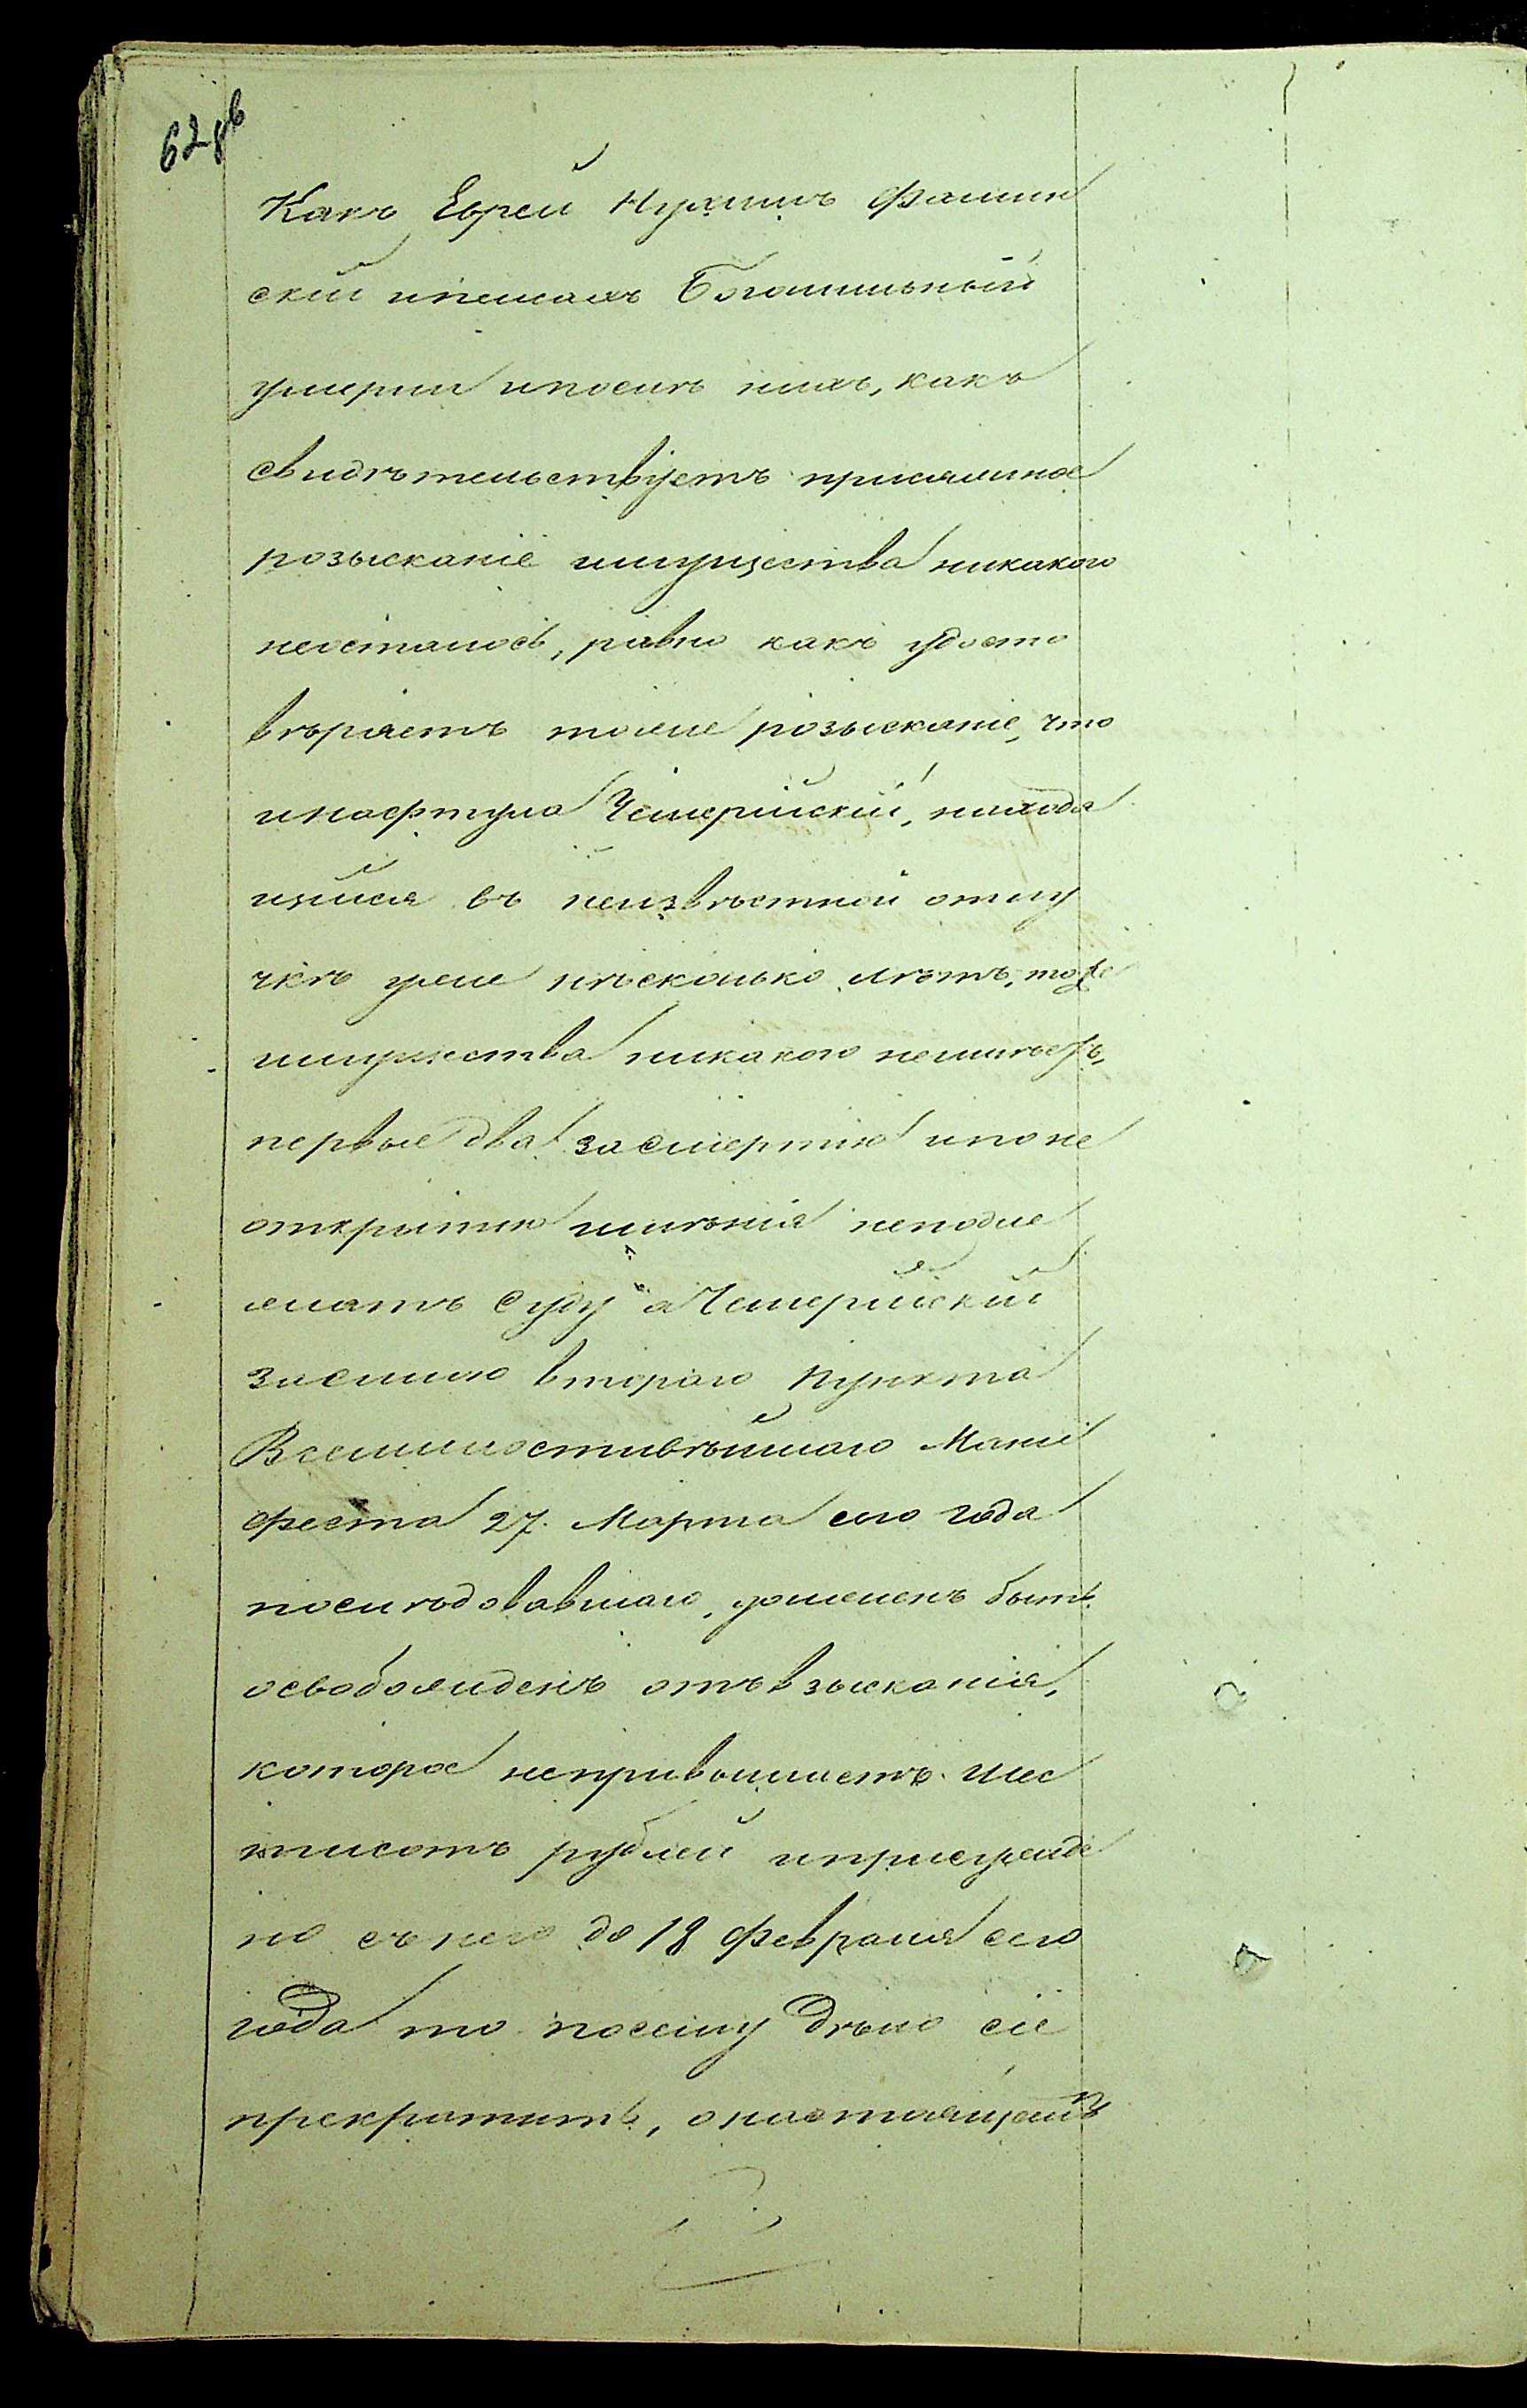 62 об
Какъ Еврей Нухимъ Фамин
скій иПешахъ Богомильный
умерши ипослѣ нихъ, какъ
свидѣтельствуетъ присяжное
розысканіе имущества никакого
неосталось, равно какъ удосто
вѣряетъ тоже розысканіе, что
иНафтула Чемерійскій, находя
щійся въ неизвѣстной отлу
чкѣ уже нѣсколько лѣтъ, тоже
имущества никакого неимѣетъ,
первые два засмертію ипоне
открытію имѣнія неподле
жатъ Суду а Чемерійскій
засилою втораго пункта
Всемилостивѣйшаго Мани
феста 27. Марта сего года
послѣдовавшаго, долженъ быть
освобожденъ отъ взысканія,
которое непривышаетъ шес
тисотъ рублей иприсужде
но съ него до 18 Февраля сего
года то посему дѣло сіе
прекратить, онастоящемъ